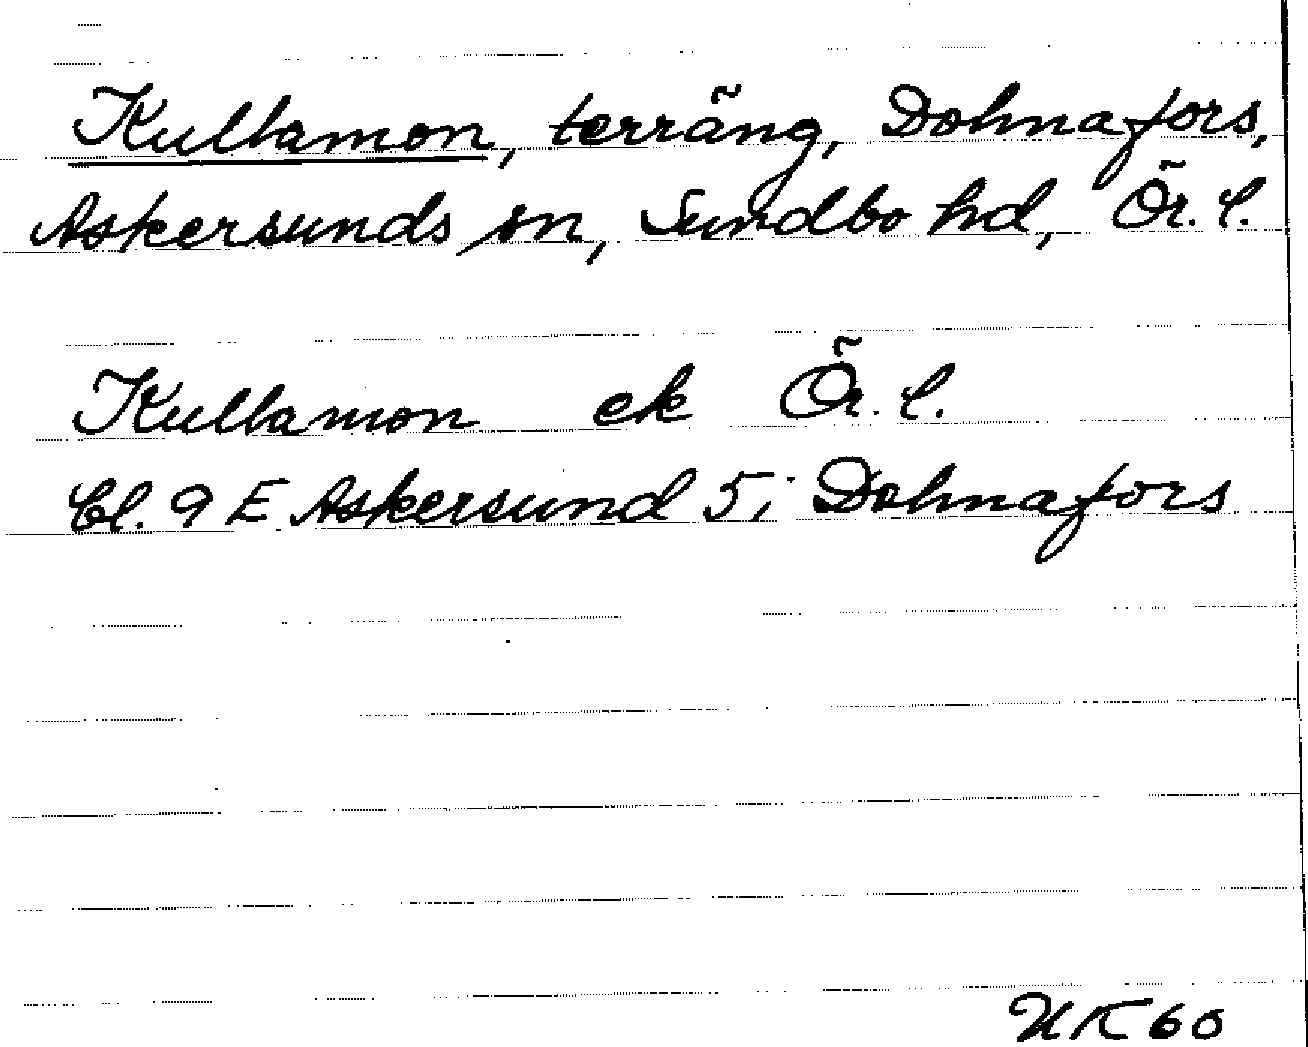 Kullamon, terräng, Dohnafors,
Askersunds sn, Sundbo hd, Ör. l.
Kullamon ek Ör. l.
Bl. 9 E Askersund 5 i Dohnafors
UK 60